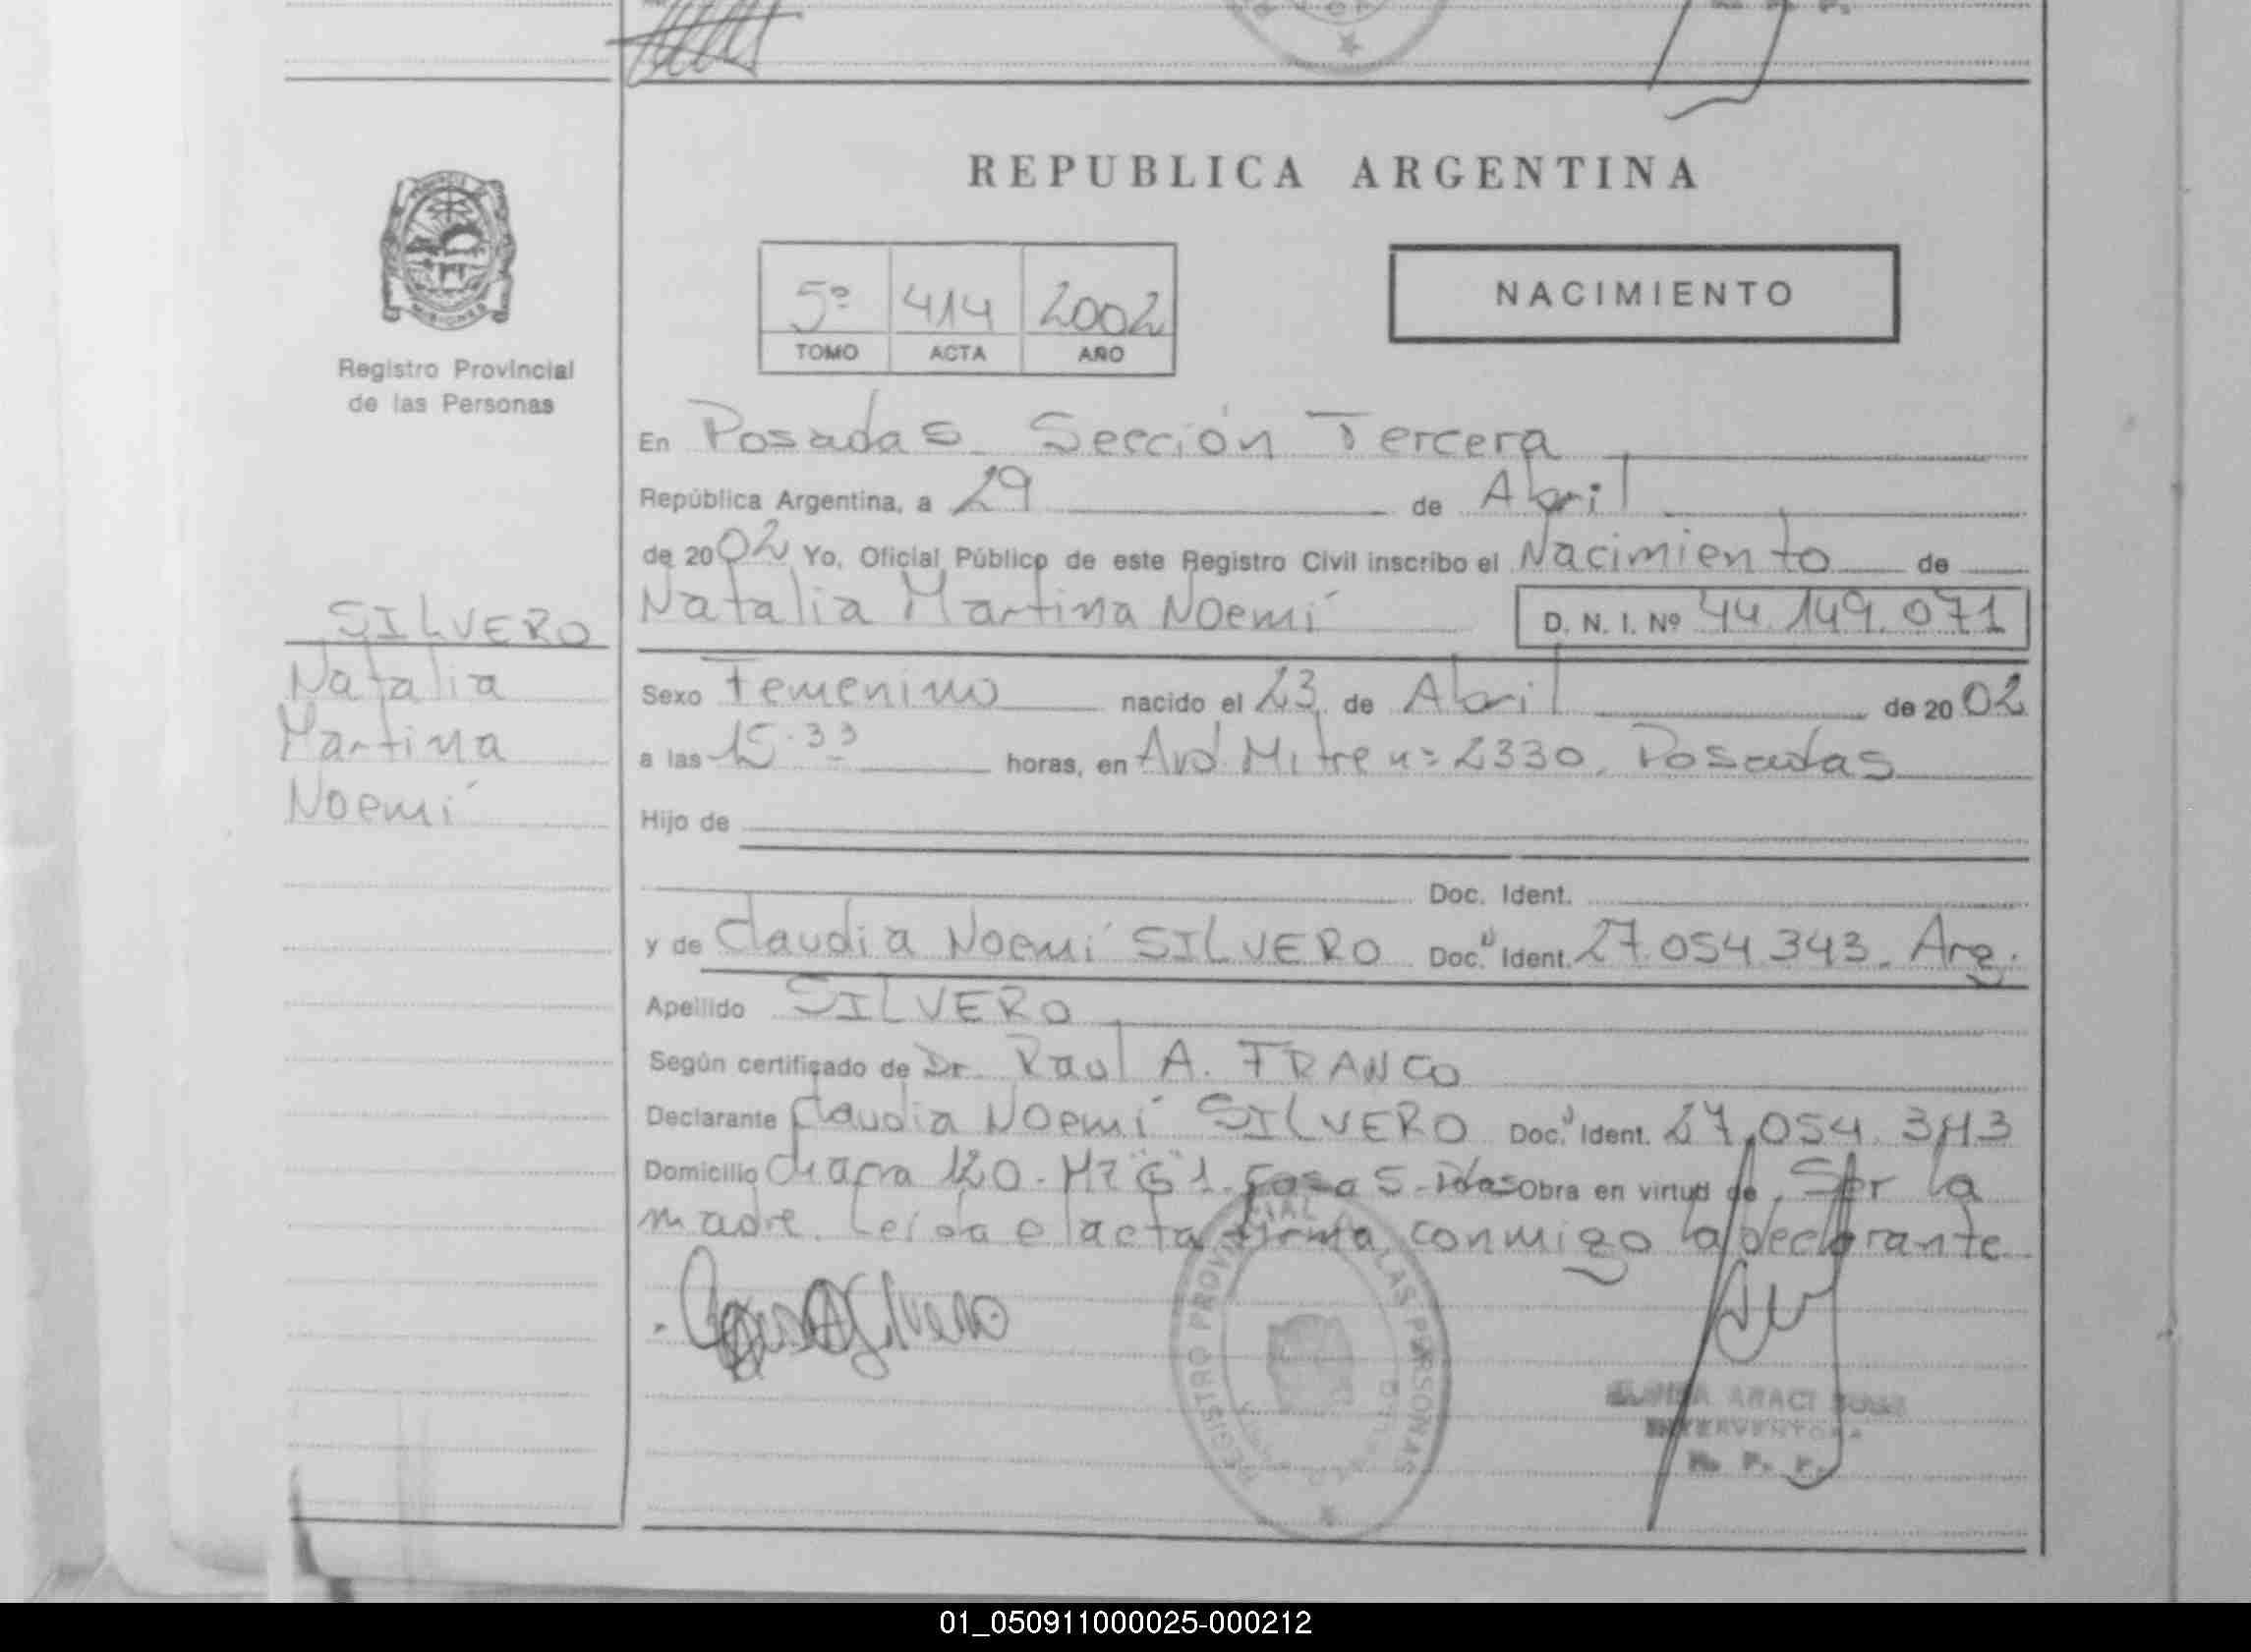 REPUBLICA ARGENTINA
5º 414 2002
TOMO ACTA AÑO
NACIMIENTO
MISIONES
Registro Provincial
de las Personas
SILVERO
Natalia
Martina
Noemí
En Posadas Sección Tercera
República Argentina, a 29 de Abril
de 2002 Yo, Oficial Público de este Registro Civil inscribo el Nacimiento de
Natalia Martina Noemí D. N. I. Nº 44.149.071
Sexo Femenino nacido el 23 de Abril de 2002
a las 15.33 horas, en Avd. Mitre nº 2330. Posadas
Hijo de
Doc. Ident.
y de Claudia Noemí SILVERO Doc. Ident. 27.054.343. Arg.
Apellido SILVERO
Según certificado de Dr. Raul A. FRANCO
Declarante Claudia Noemí SILVERO Doc. Ident. 27.054.343
Domicilio Chacra 120. Mz "G" 1. Casa 5. Pdas Obra en virtud de Ser la
madre. Leida el acta firma conmigo la declarante
Silvero
REGISTRO PROVINCIAL DE LAS PERSONAS
ARACI
INTERVENTORA
R. P. P.
01_050911000025-000212